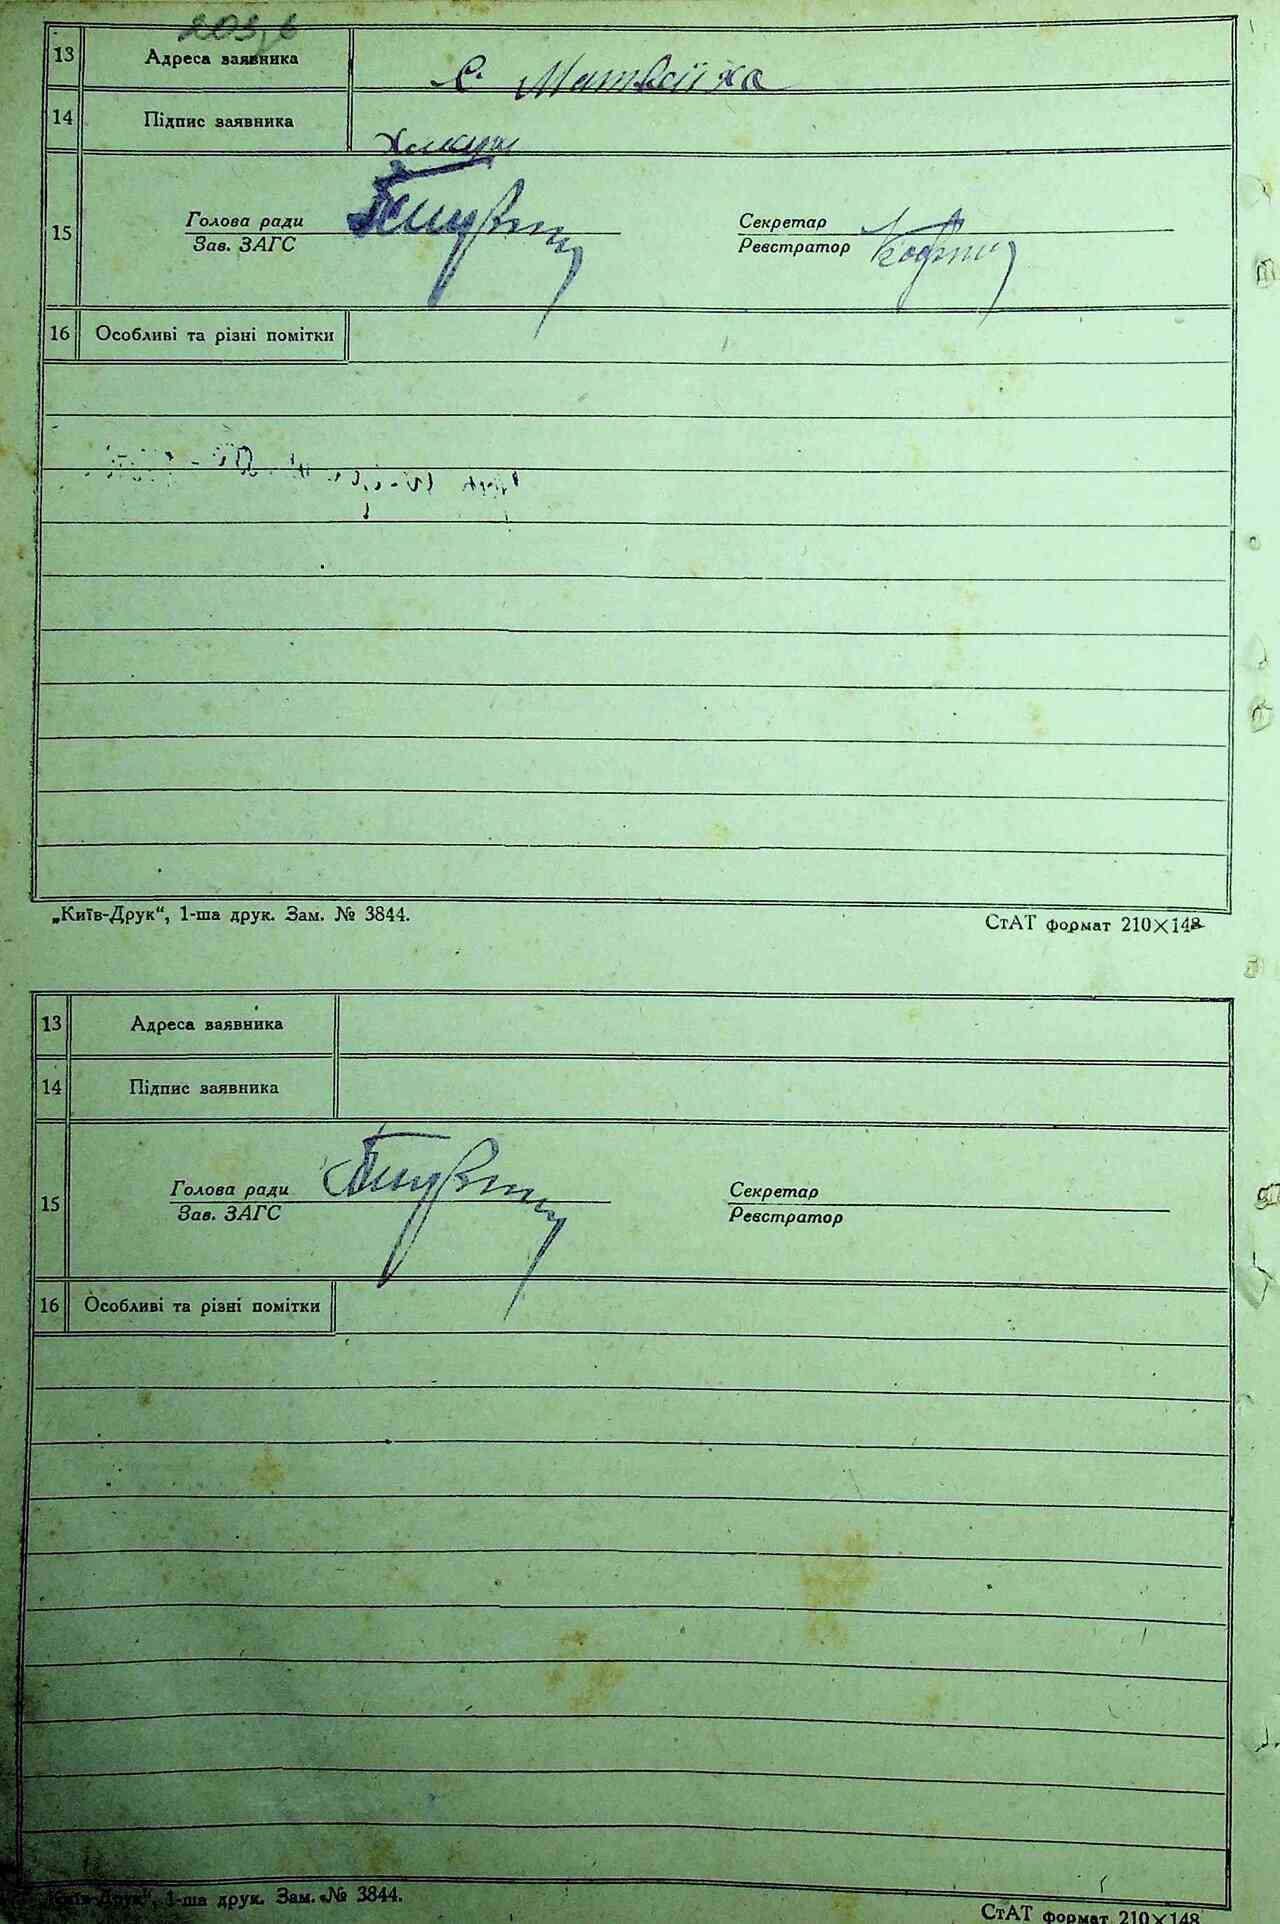 13 Адреса заявника с. Матвіїха
14 Підпис заявника
15 Голова ради Секретар
Зав. ЗАГС Реєстратор
16 Особливі та різні помітки
„Київ-Друк“, 1-ша друк. Зам. № 3844. СтАТ формат 210×148
13 Адреса заявника
14 Підпис заявника
15 Голова ради Секретар
Зав. ЗАГС Реєстратор
16 Особливі та різні помітки
„Київ-Друк“, 1-ша друк. Зам. № 3844.
СтАТ формат 210×148